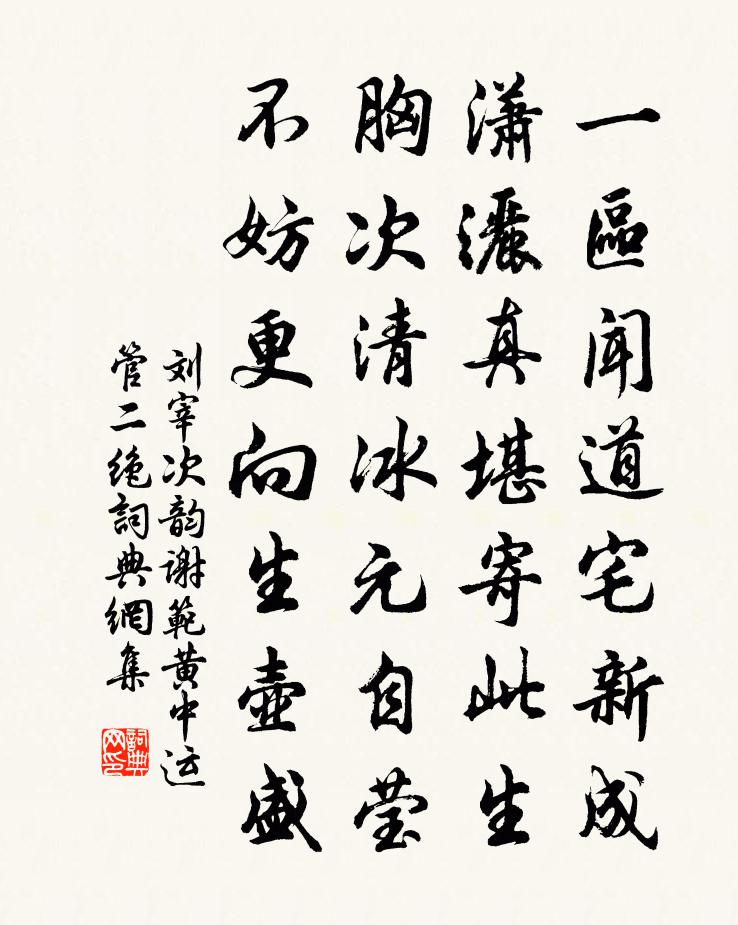 一區聞道宅新成
瀟灑真堪寄此生
胸次清冰元自瑩
不妨更向生壺盛
刘宰次韵谢範黄中运
管二绝詞典網集
詞典网印